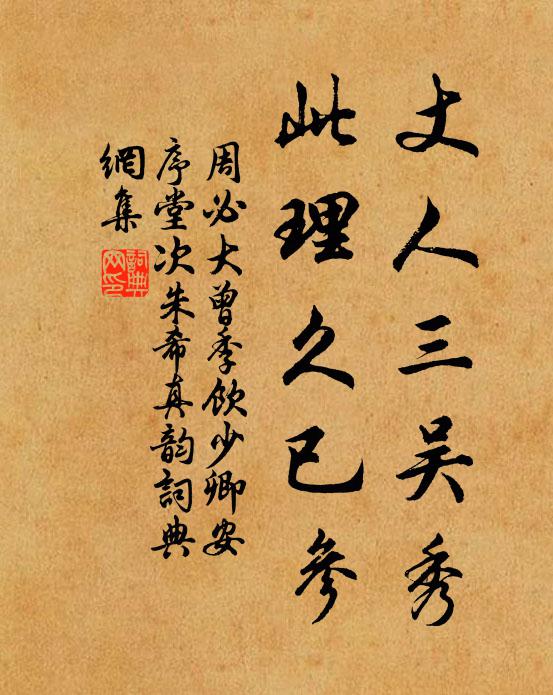 丈人三吴秀
此理久已參
周必大曾季飲少卿安
序堂次朱希真韵詞典
網集
詞典网印